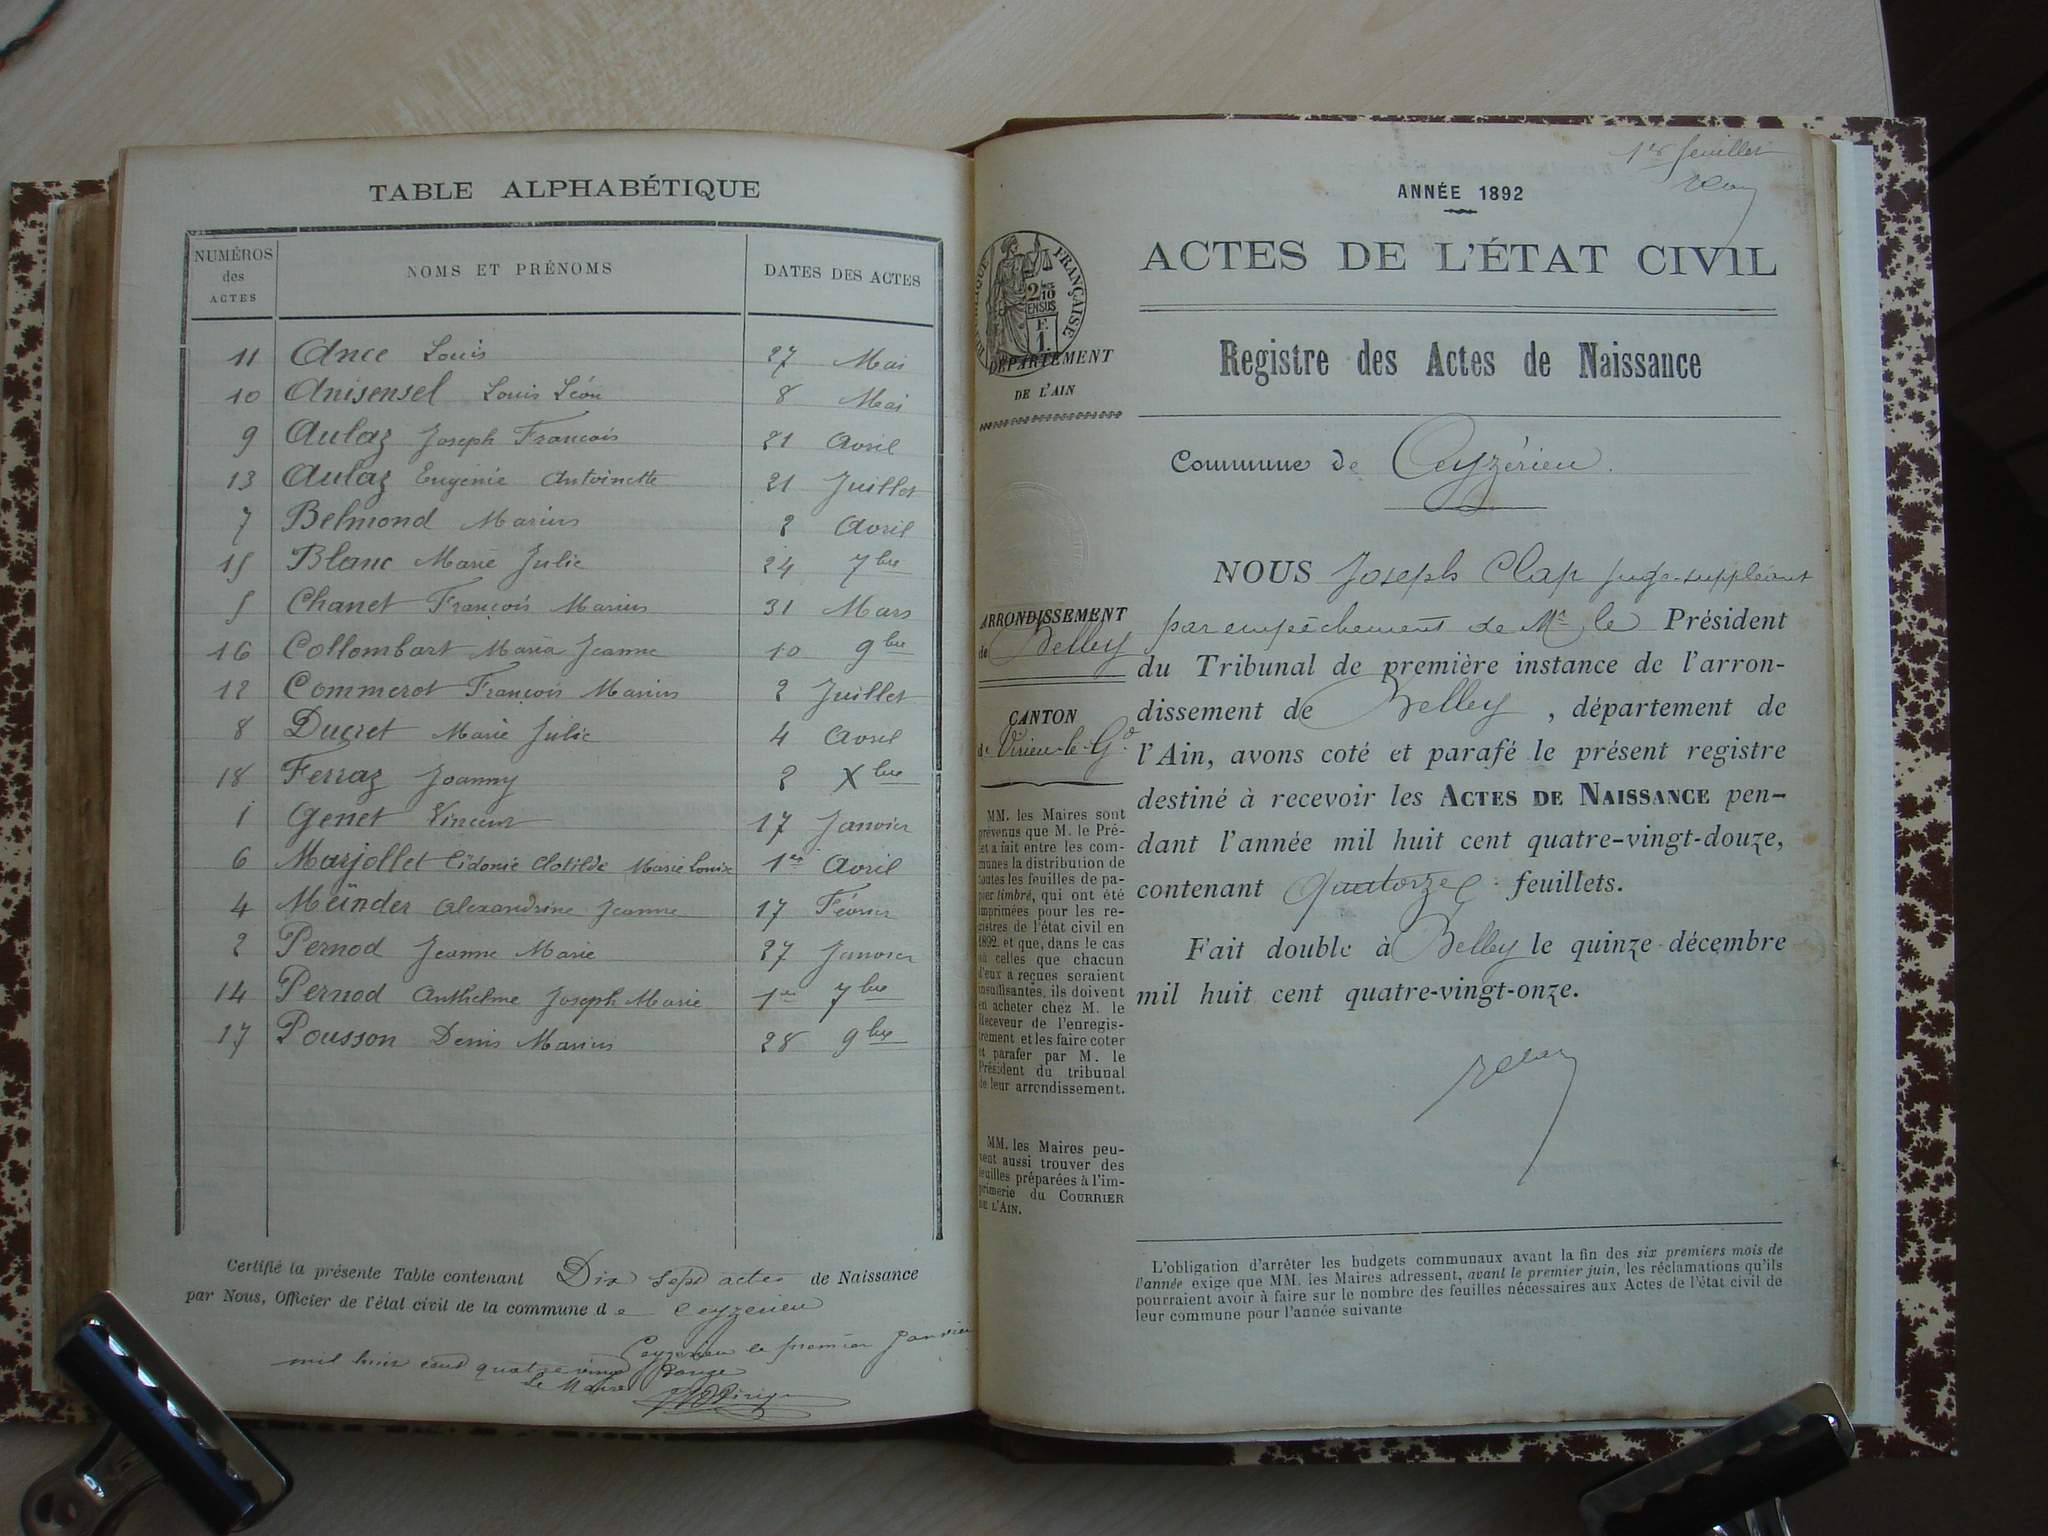 TABLE ALPHABÉTIQUE
NUMÉROS des ACTES NOMS ET PRÉNOMS DATES DES ACTES
11 Ance Louis 27 Mai
10 Anisensel Louis Léon 8 Mai
9 Aulaz Joseph François 21 Avril
13 Aulaz Eugénie Antoinette 21 Juillet
7 Belmond Marius 2 Avril
15 Blanc Marie Julie 24 7bre
5 Chanet François Marius 31 Mars
16 Collombart Maria Jeanne 10 9bre
12 Commerot François Marius 2 Juillet
8 Ducret Marie Julie 4 Avril
18 Ferraz Joanny 2 Xbre
1 Genet Vincent 17 Janvier
6 Marjollet Cidonie Clotilde Marie Louise 1er Avril
4 Meïnder Alexandrine Jeanne 17 Février
2 Pernod Jeanne Marie 27 Janvier
14 Pernod Anthelme Joseph Marie 1er 7bre
17 Pousson Denis Marius 28 9bre
Certifié la présente Table contenant Dix sept actes de Naissance
par Nous, Officier de l'état civil de la commune de Ceyzerieu
Ceyzerieu le premier Janvier
mil huit cent quatre vingt
Le Maire
1er feuillet
ANNÉE 1892
ACTES DE L'ÉTAT CIVIL
RÉPUBLIQUE FRANÇAISE
2/10 EN SUS
E.
1.
DÉPARTEMENT
DE L'AIN
Registre des Actes de Naissance
Commune de Ceyzérieu.
ARRONDISSEMENT
de Belley
CANTON
de Virieu-le-Gd
MM. les Maires sont
prévenus que M. le Pré-
fet a fait entre les com-
munes la distribution de
toutes les feuilles de pa-
pier timbré, qui ont été
imprimées pour les re-
gistres de l'état civil en
1892, et que, dans le cas
où celles que chacun
d'eux a reçues seraient
insuffisantes, ils doivent
en acheter chez M. le
Receveur de l'enregis-
trement et les faire coter
et parafer par M. le
Président du tribunal
de leur arrondissement.
MM. les Maires peu-
vent aussi trouver des
feuilles préparées à l'im-
primerie du COURRIER
DE L'AIN.
NOUS Joseph Clap juge-suppléant
par empêchement de Mr le Président
du Tribunal de première instance de l'arron-
dissement de Belley, département de
l'Ain, avons coté et parafé le présent registre
destiné à recevoir les ACTES DE NAISSANCE pen-
dant l'année mil huit cent quatre-vingt-douze,
contenant quatorze feuillets.
Fait double à Belley le quinze décembre
mil huit cent quatre-vingt-onze.
L'obligation d'arrêter les budgets communaux avant la fin des six premiers mois de
l'année exige que MM. les Maires adressent, avant le premier juin, les réclamations qu'ils
pourraient avoir à faire sur le nombre des feuilles nécessaires aux Actes de l'état civil de
leur commune pour l'année suivante